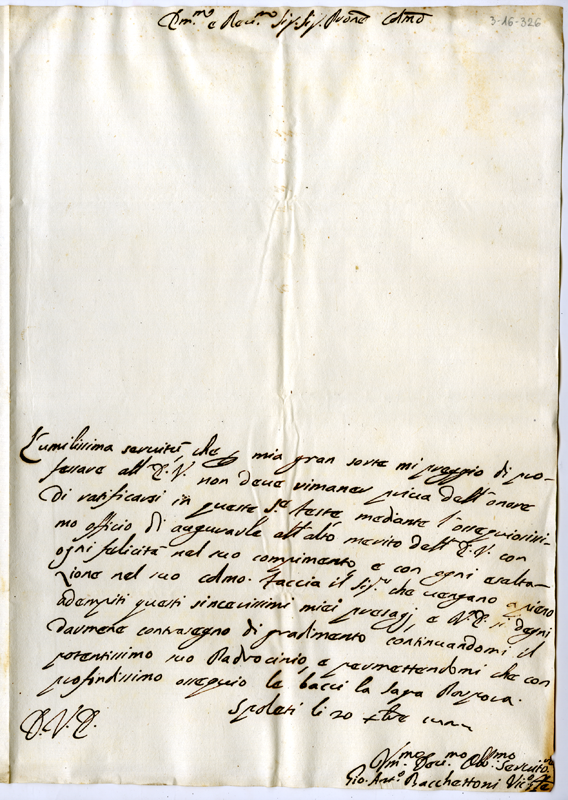 3-16-326
Em.mo e Rev.mo Sig. Sig. Prone Colmo
L'umilissima servitù, che p mia gran sorte mi preggio di pro-
fessare all'E.V. non deve rimaner priva dell'onore
di ratificarsi in queste S.e feste, mediante l'ossequiosissi-
mo officio di augurarle all'alto merito dell'E.V. con
ogni felicità nel suo compimento, e con ogni esalta-
zione nel suo colmo. Faccia il Sig.re che vengano a pieno
adempiti questi sincerissimi miei presagj, e V.E. si degni
darmene contrasegno di gradimento continuandomi il
potentissimo suo Padrocinio, e permettendomi che con
profondissimo ossequio le bacci la Sagra Porpora.
Spoleti li 20 xbre
D.V.E.
Um.mo Dev.mo Obb.mo Servito.re
Gio. Ant.o Bacchettoni